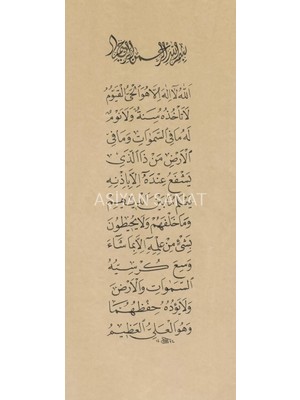 بسم الله الرحمن الرحيم
اَللّٰهُ لَٓا اِلٰهَ اِلَّا هُوَ الْحَيُّ الْقَيُّومُ
لَا تَأْخُذُهُ سِنَةٌ وَلَا نَوْمٌ
لَهُ مَا فِي السَّمٰوَاتِ وَمَا فِي
الْاَرْضِ مَنْ ذَا الَّذٖي
يَشْفَعُ عِنْدَهُٓ اِلَّا بِاِذْنِهٖ
يَعْلَمُ مَا بَيْنَ اَيْدٖيهِمْ
ASİYAN SANAT
وَمَا خَلْفَهُمْ وَلَا يُحٖيطُونَ
بِشَيْءٍ مِنْ عِلْمِهٖٓ اِلَّا بِمَا شَٓاءَ
وَسِعَ كُرْسِيُّهُ
السَّمٰوَاتِ وَالْاَرْضَ
وَلَا يَؤُ۫دُهُ حِفْظُهُمَا
وَهُوَ الْعَلِيُّ الْعَظٖيمُ